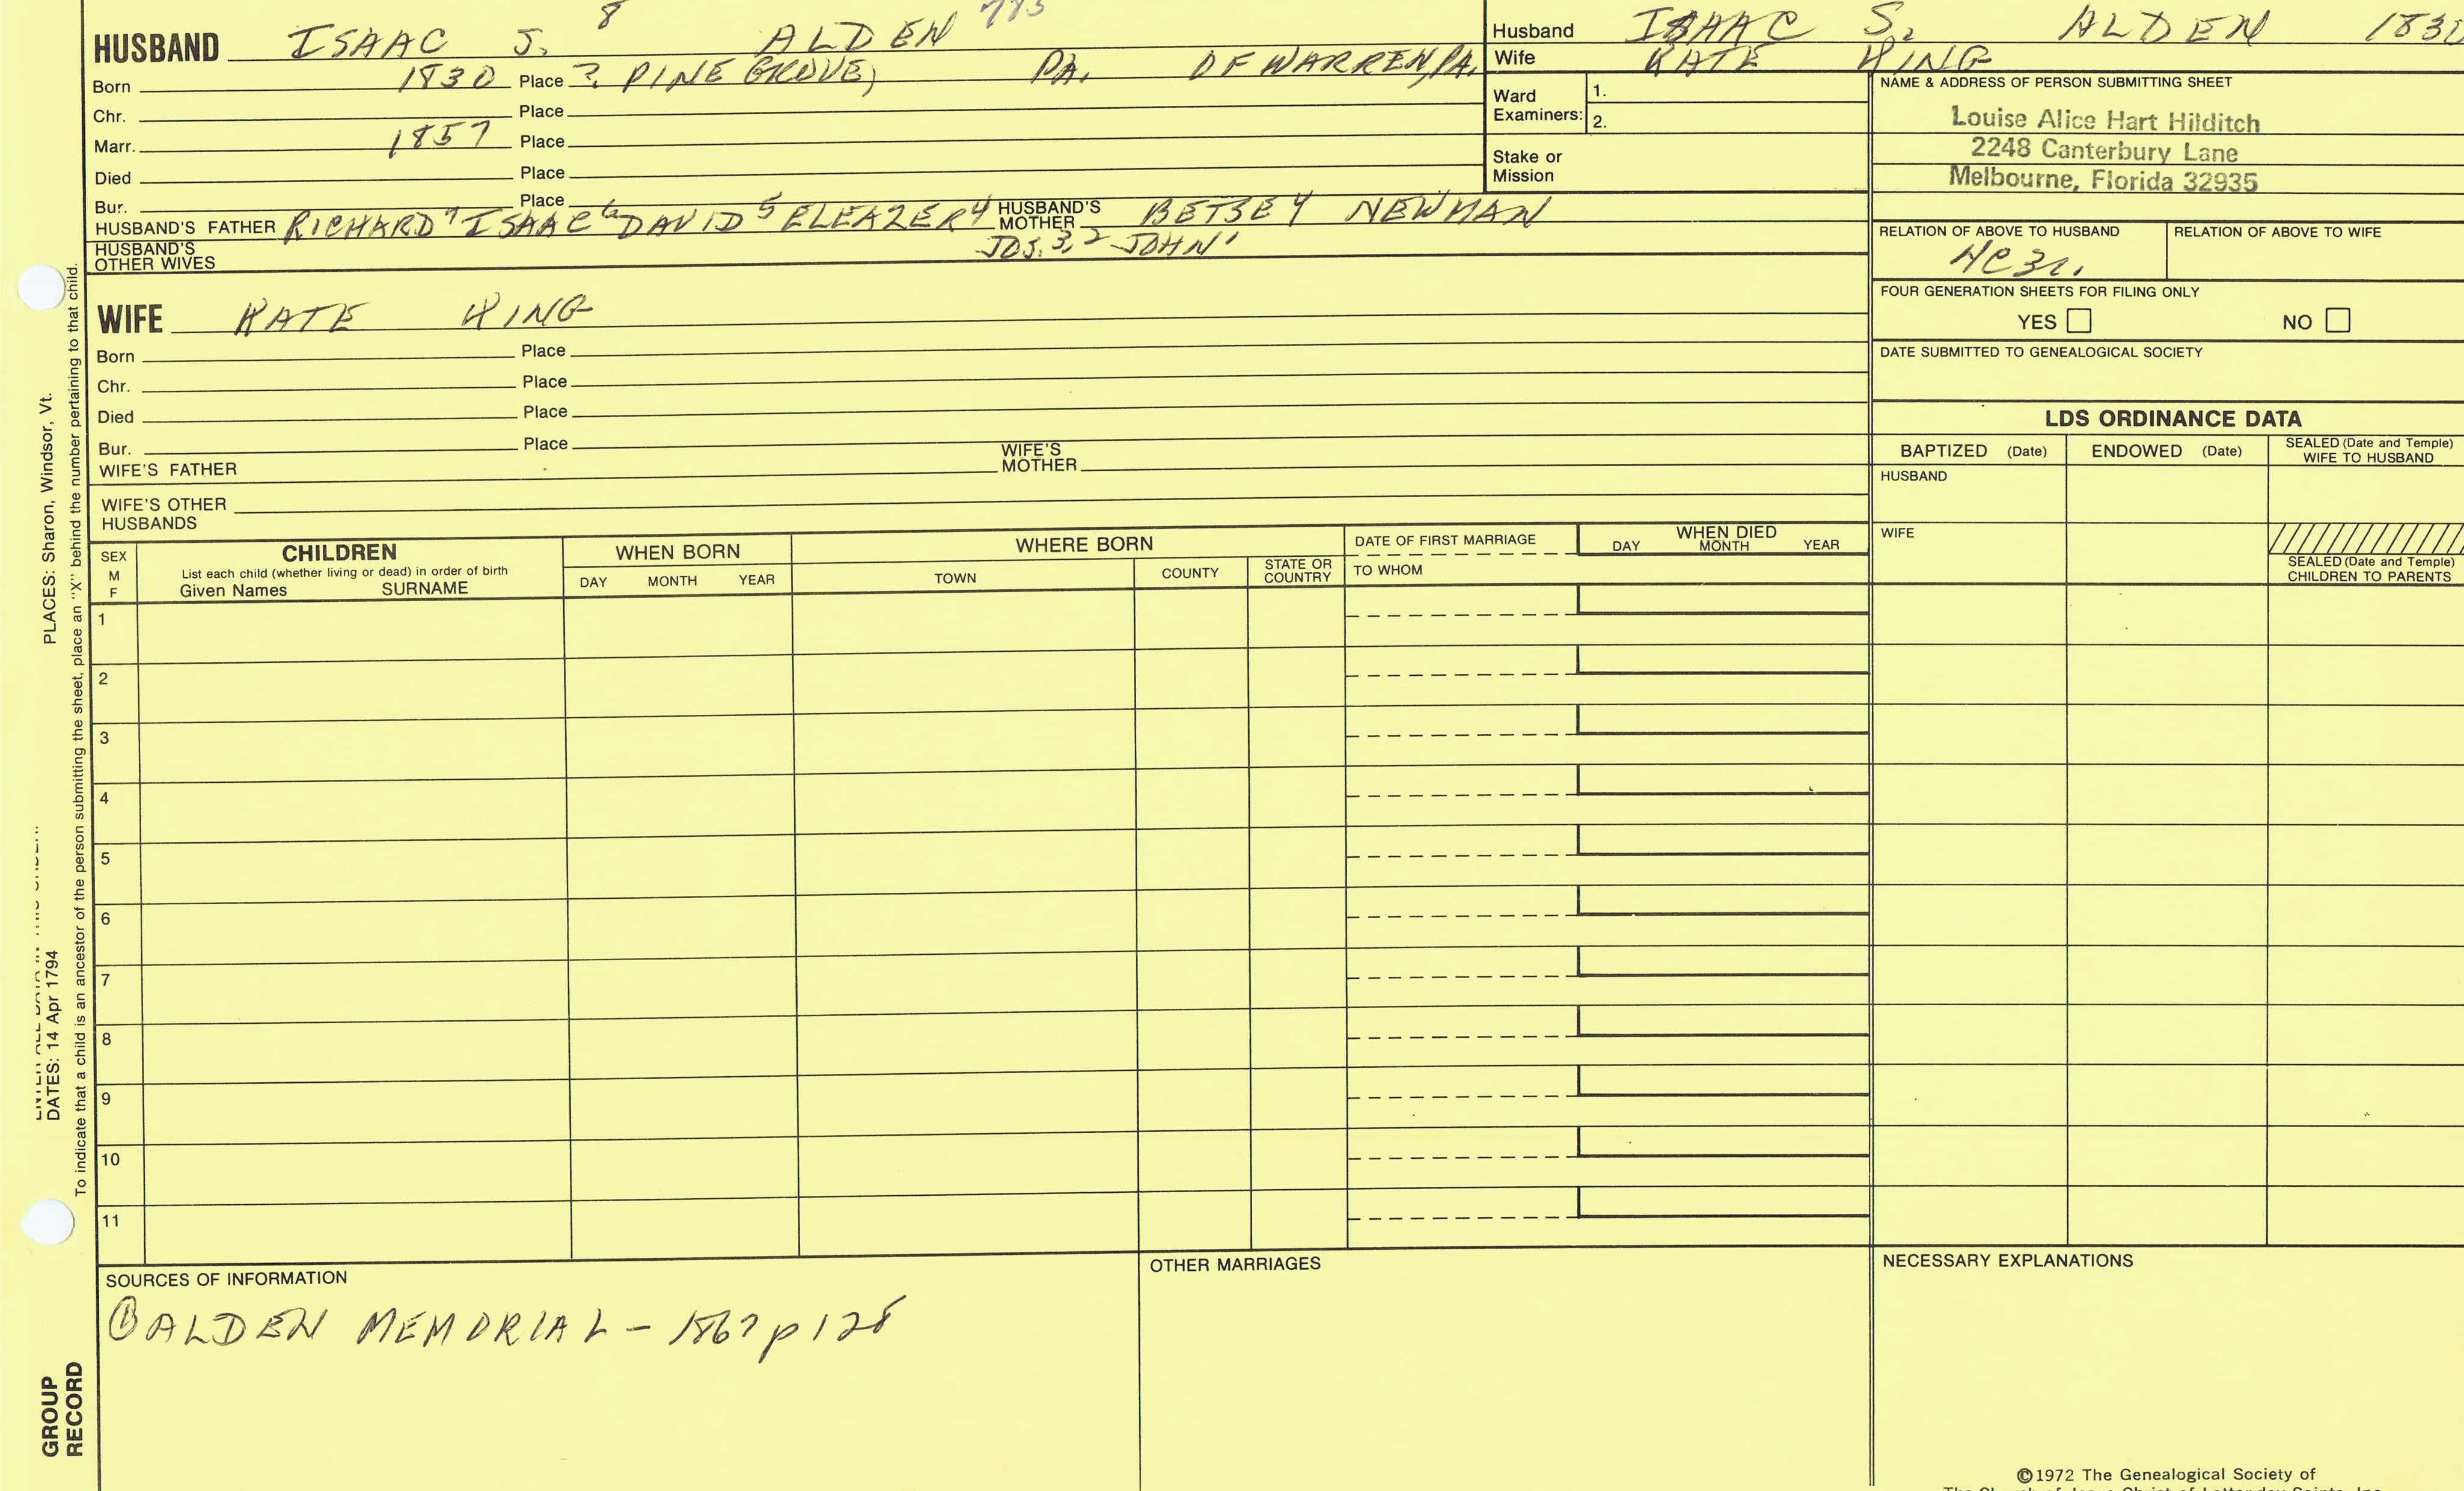 HUSBAND ISAAC J. 8 ALDEN 783
Born 1830 Place ? PINE GROVE, PA. OF WARREN, PA.
Chr. Place
Marr. 1857 Place
Died Place
Bur. Place
HUSBAND'S FATHER RICHARD 7 ISAAC 6 DAVID 5 ELEAZER 4 HUSBAND'S MOTHER BETSEY NEWMAN
JOS. 3,2 JOHN 1
HUSBAND'S OTHER WIVES
Husband ISAAC S. ALDEN 1830
Wife KATE KING
Ward Examiners: 1.
2.
Stake or Mission
NAME & ADDRESS OF PERSON SUBMITTING SHEET
Louise Alice Hart Hilditch
2248 Canterbury Lane
Melbourne, Florida 32935
RELATION OF ABOVE TO HUSBAND RELATION OF ABOVE TO WIFE
FOUR GENERATION SHEETS FOR FILING ONLY
YES NO
DATE SUBMITTED TO GENEALOGICAL SOCIETY
WIFE KATE KING
Born Place
Chr. Place
Died Place
Bur. Place
WIFE'S FATHER WIFE'S MOTHER
WIFE'S OTHER HUSBANDS
LDS ORDINANCE DATA
BAPTIZED (Date) ENDOWED (Date) SEALED (Date and Temple) WIFE TO HUSBAND
HUSBAND
WIFE
SEALED (Date and Temple) CHILDREN TO PARENTS
SEX M F
CHILDREN
List each child (whether living or dead) in order of birth
Given Names SURNAME
WHEN BORN
DAY MONTH YEAR
WHERE BORN
TOWN COUNTY STATE OR COUNTRY
DATE OF FIRST MARRIAGE
TO WHOM
WHEN DIED
DAY MONTH YEAR
1
2
3
4
5
6
7
8
9
10
11
SOURCES OF INFORMATION
① ALDEN MEMORIAL - 1867 p 128
OTHER MARRIAGES
NECESSARY EXPLANATIONS
©1972 The Genealogical Society of
The Church of Jesus Christ of Latter-day Saints, Inc.
PLACES: Sharon, Windsor, Vt.
DATES: 14 Apr 1794
To indicate that a child is an ancestor of the person submitting the sheet, place an "X" behind the number pertaining to that child.
GROUP
RECORD